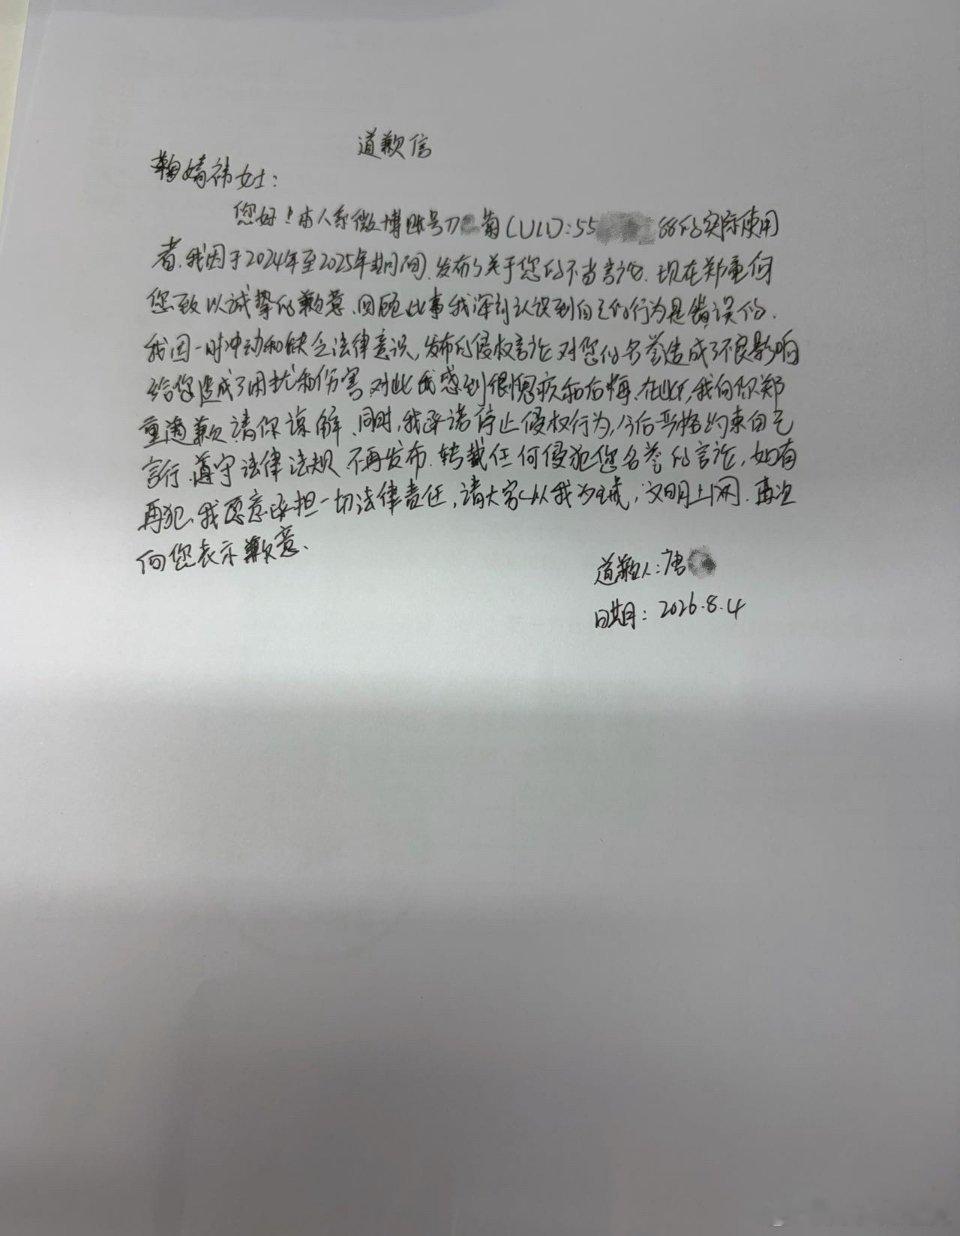 道歉信
鞠婧祎女士:
您好!本人系微博账号刀 菊(UID):55 88的实际使用
者.我因于2024年至2025年期间.发布了关于您的不当言论.现在郑重向
您致以诚挚的歉意.回顾此事我深刻认识到自己的行为是错误的.
我因一时冲动和缺乏法律意识,发布的侵权言论对您的名誉造成了不良影响
给您造成了困扰和伤害对此我感到很愧疚和后悔.在此,我向你郑
重道歉请你谅解.同时,我承诺停止侵权行为,今后严格约束自己
言行.遵守法律法规不再发布.转载任何侵犯您名誉的言论,如有
再犯.我愿意承担一切法律责任,请大家以我为戒,文明上网.再次
向您表示歉意.
道歉人:唐
日期:2026.8.4